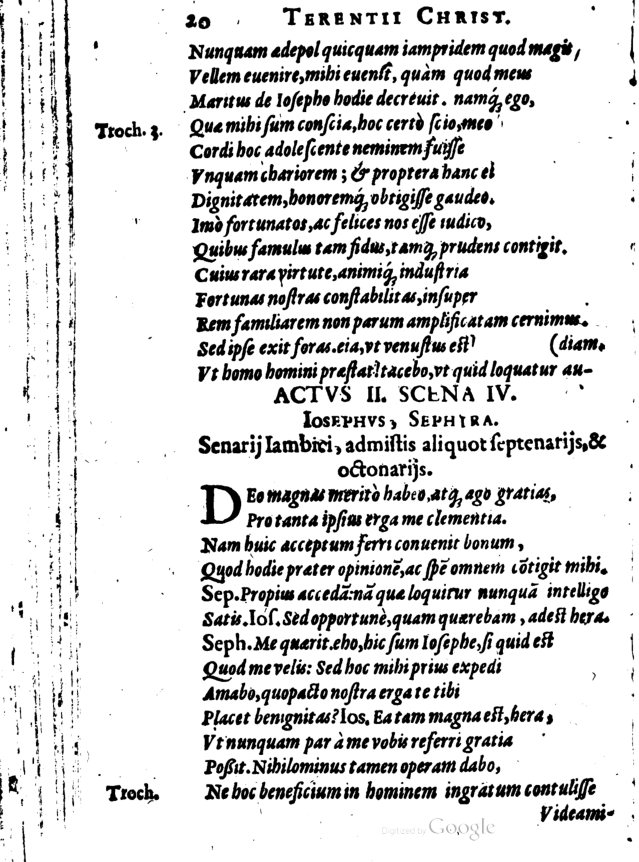 20 TERENTII CHRIST.
Nunquam ædepol quicquam iampridem quod magis,
Vellem euenire, mihi euenit, quàm quod meus
Maritus de Iosepho hodie decreuit. namq́; ego,
Troch. 3. Quæ mihi sum conscia, hoc certò scio, meo
Cordi hoc adolescente neminem fuisse
Vnquam chariorem; & propterea hanc ei
Dignitatem, honoremq́; obtigisse gaudeo.
Imò fortunatos, ac felices nos esse iudico,
Quibus famulus tam fidus, tamq́; prudens contigit.
Cuius rara virtute, animiq́; industria
Fortunas nostras constabilitas, insuper
Rem familiarem non parum amplificatam cernimus.
Sed ipse exit foras. eia, vt venustus est! (diam.
Vt homo homini præstat! tacebo, vt quid loquatur au-
ACTVS II. SCENA IV.
IOSEPHVS, SEPHIRA.
Senarij Iambici, admistis aliquot septenarijs, &
octonarijs.
DEo magnas meritò habeo, atq́; ago gratias,
Pro tanta ipsius erga me clementia.
Nam huic acceptum ferri conuenit bonum,
Quod hodie præter opinionē, ac spē omnem cōtigit mihi.
Sep. Propius accedā: nā quæ loquitur nunquā intelligo
Satis. Ios. Sed opportunè, quam quærebam, adest hera.
Seph. Me quærit. eho, hic sum Iosephe, si quid est
Quod me velis: Sed hoc mihi prius expedi
Amabo, quo pacto nostra erga te tibi
Placet benignitas? Ios. Ea tam magna est, hera,
Vt nunquam par à me vobis referri gratia
Poßit. Nihilominus tamen operam dabo,
Troch. Ne hoc beneficium in hominem ingratum contulisse
Videami-
Digitized by Google